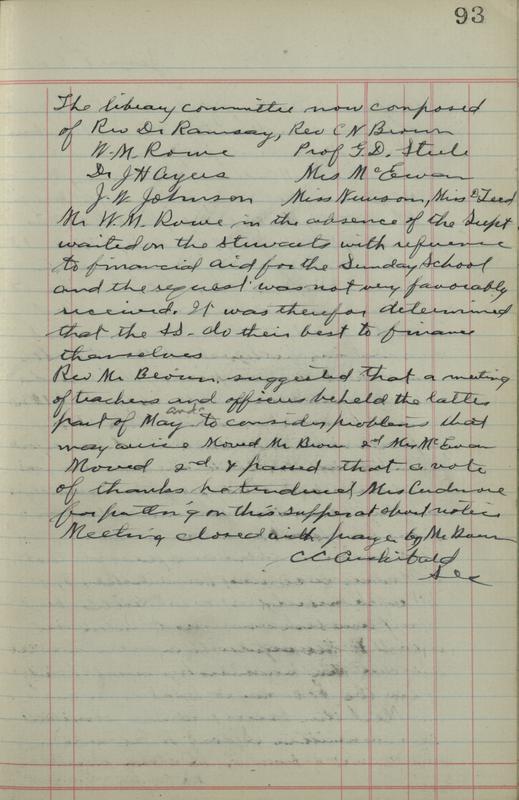 93
The library committee now composed
of Rev Dr Ramsay, Rev C N Brown
W. M. Rowe Prof G. D. Steele
Dr J H Ayers Mrs McEwan
J. W. Johnson Miss Newson, Miss
Mr W. M. Rowe in the absence of the Supt
waited on the Stewards with reference
to financial aid for the Sunday School
and the request was not very favorably
received. It was therefor determined
that the SS. do their best to finance
themselves
Rev Mr Brown suggested that a meeting
of teachers and officers be held the latter
part of May and to consider problems that
may arise Moved Mr Brown 2nd Mrs McEwan
Moved 2nd & passed that a vote
of thanks be tendered Mrs Cudmore
for putting on this supper at short notice
Meeting closed with prayer by Mr Brown
C C Archibald
Sec